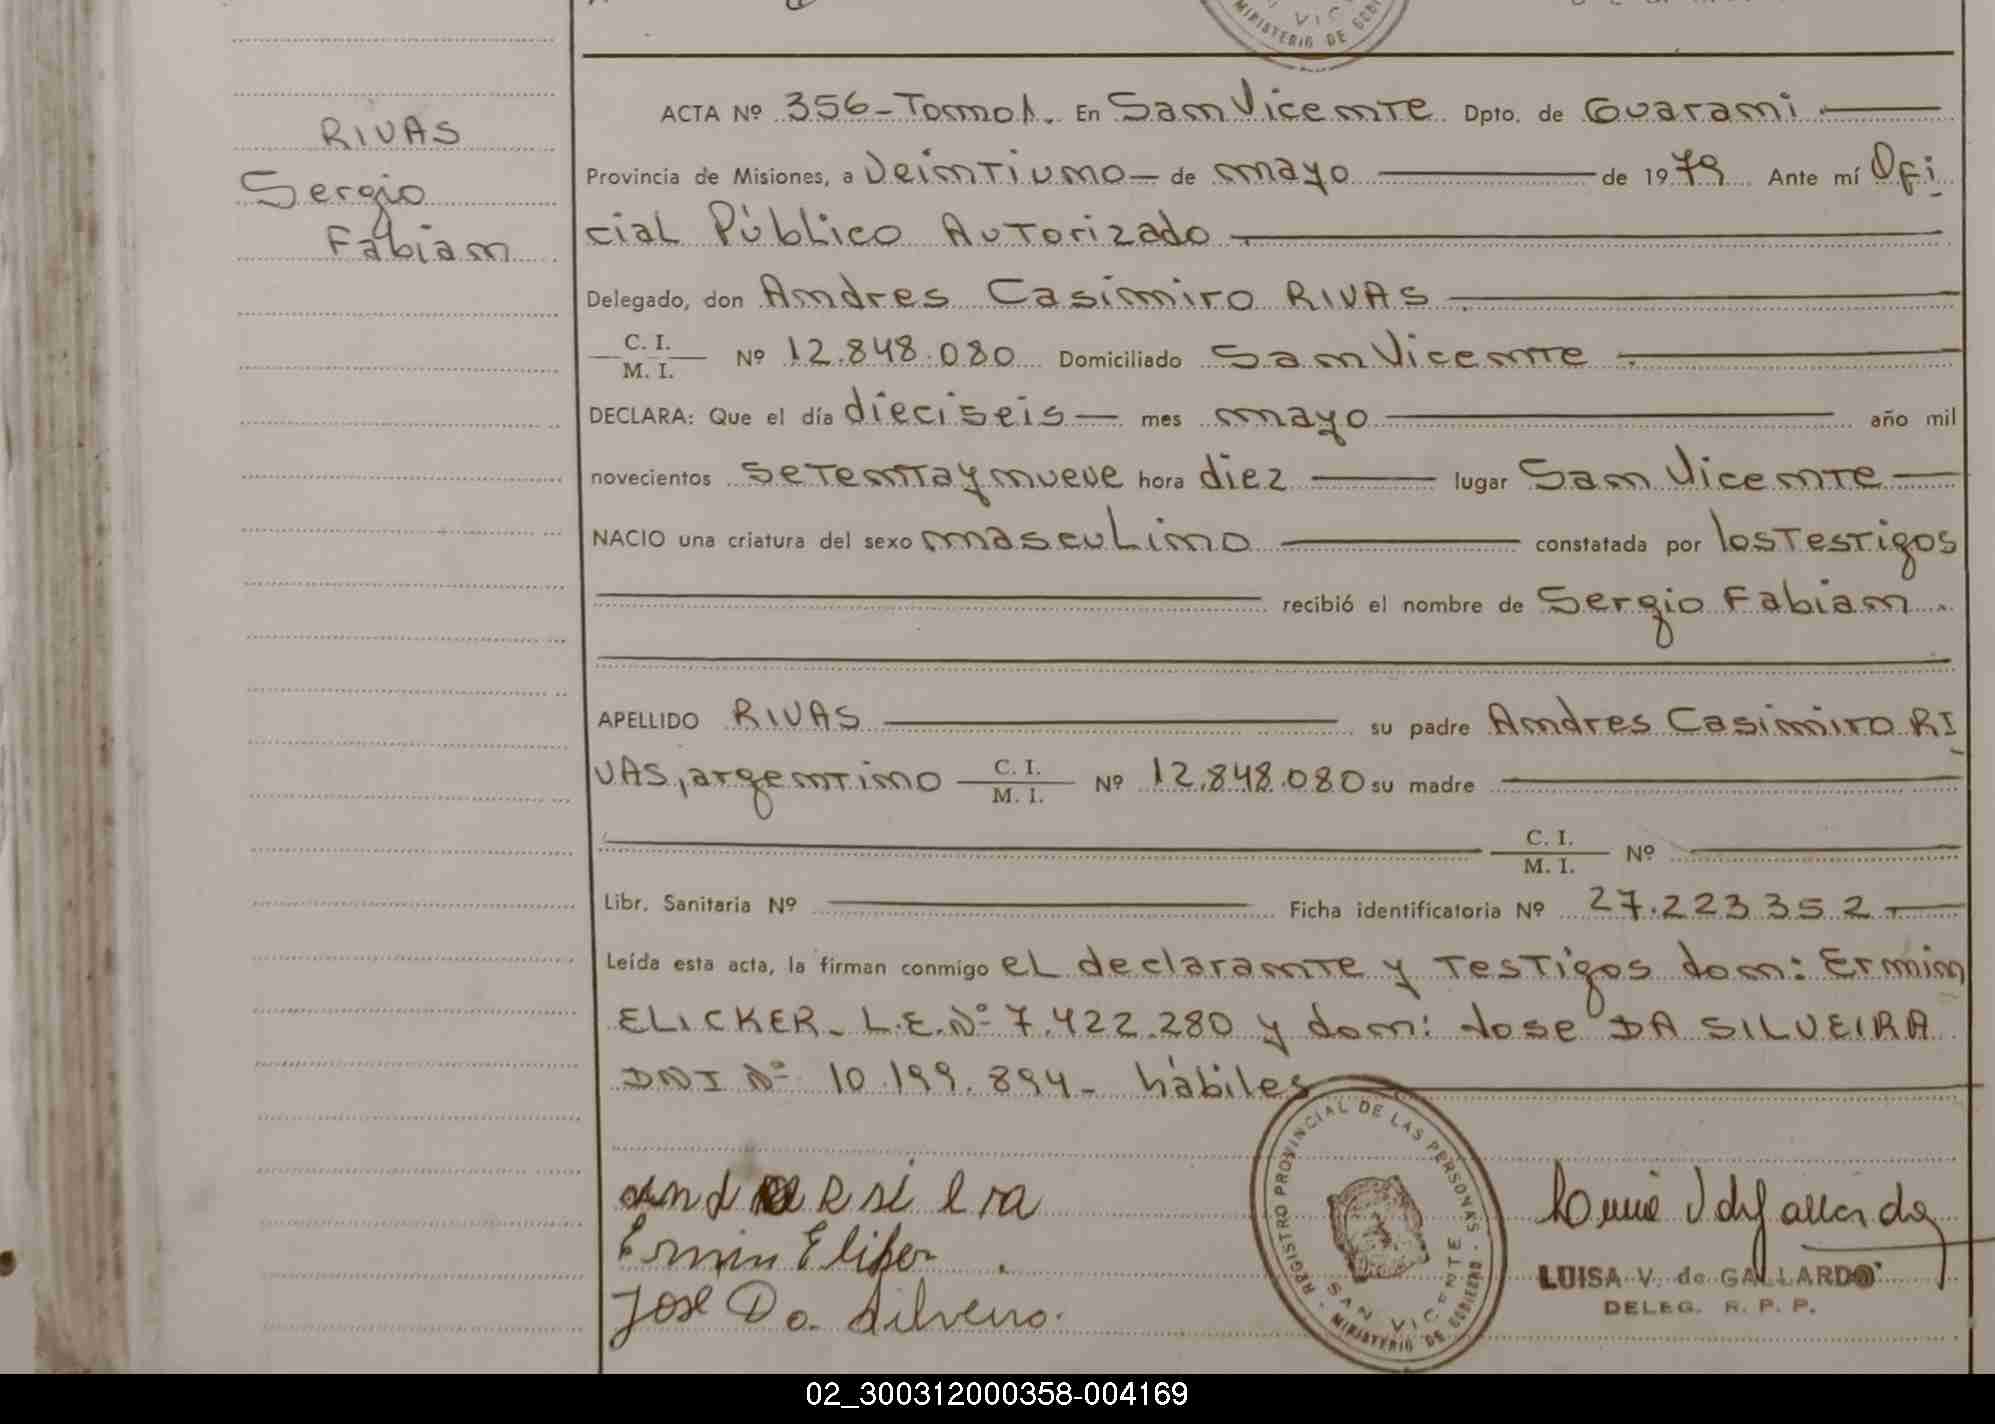 MINISTERIO DE GOBI
RIVAS
Sergio
Fabian
ACTA Nº 356-Tomo I. En San Vicente Dpto. de Guarani
Provincia de Misiones, a Veintiuno — de mayo — de 1979 Ante mí Ofi
cial Público Autorizado —
Delegado, don Andres Casimiro RIVAS —
C. I.
M. I. Nº 12.848.080 Domiciliado San Vicente —
DECLARA: Que el día dieciseis — mes mayo — año mil
novecientos setenta y nueve hora diez — lugar San Vicente —
NACIO una criatura del sexo masculino — constatada por los Testigos
— recibió el nombre de Sergio Fabian
APELLIDO RIVAS — su padre Andres Casimiro RI
VAS, argentino — C. I. / M. I. Nº 12.848.080 su madre —
— C. I. / M. I. Nº —
Libr. Sanitaria Nº — Ficha identificatoria Nº 27.223.352 —
Leída esta acta, la firman conmigo el declarante y Testigos don: Ermin
ELICKER- L.E.Nº 7.422.280 y don: Jose DA SILVEIRA
DNI Nº 10.199.894- hábiles —
Ermin Eliker
José Da Silveira
REGISTRO PROVINCIAL DE LAS PERSONAS
SAN VICENTE
MINISTERIO DE GOBIERNO
LUISA V. de GALLARDO
DELEG. R. P. P.
02_300312000358-004169